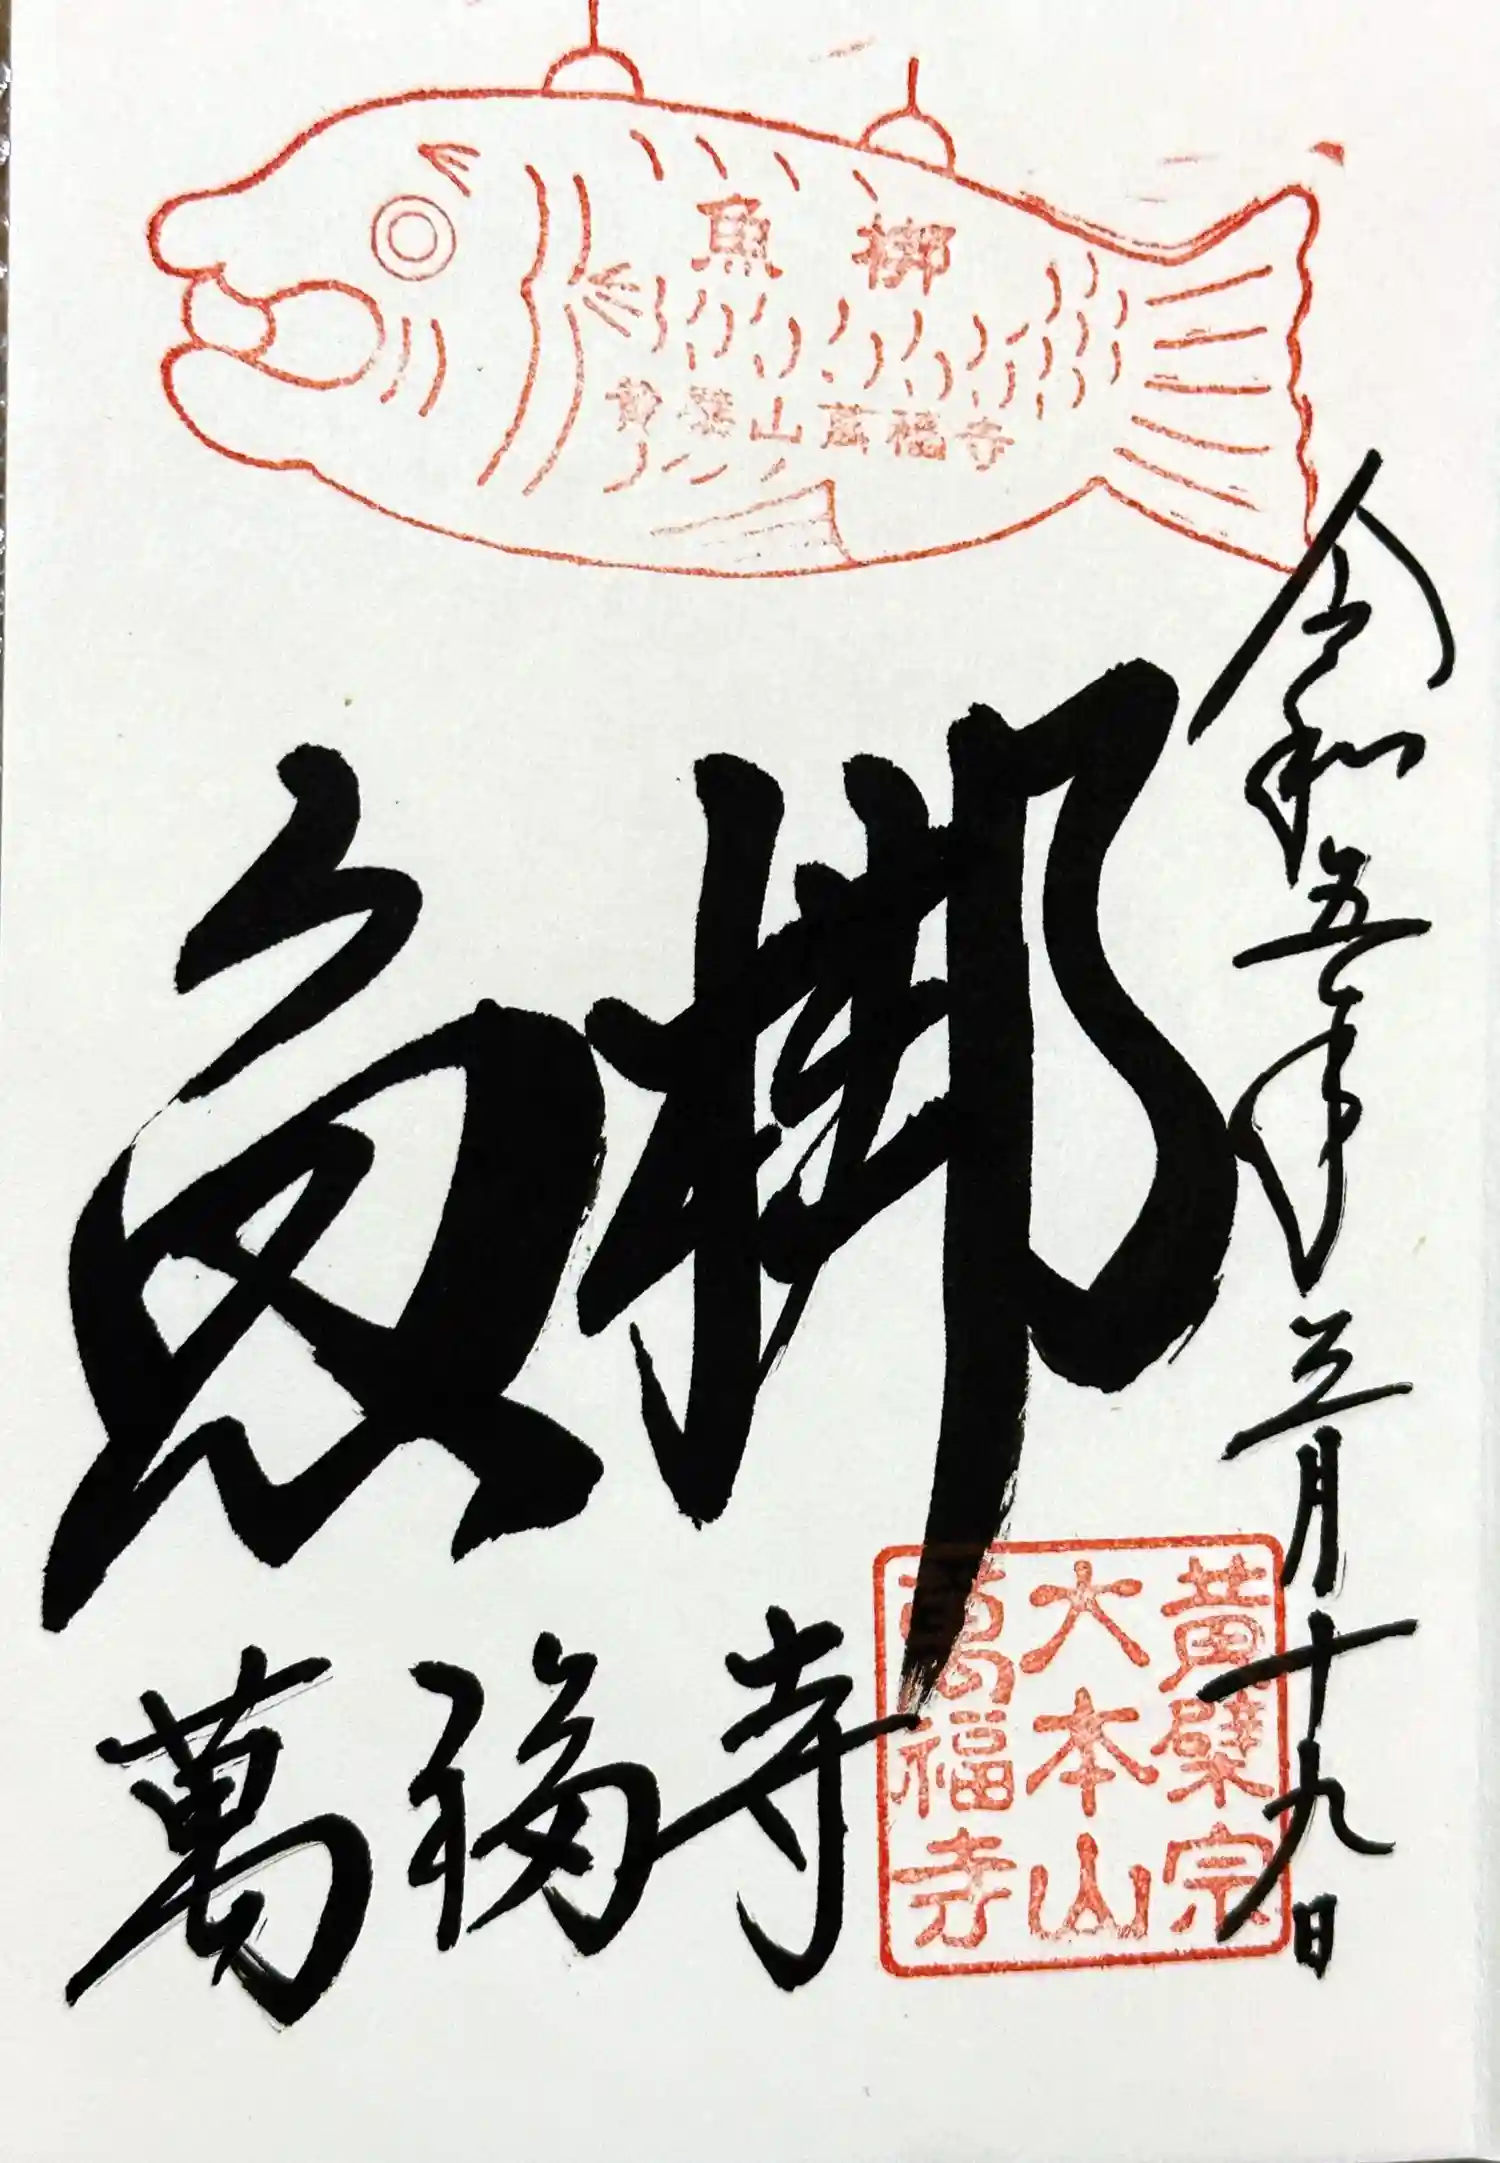 魚梆
黄檗山萬福寺
令和五年三月十九日
魚梆
萬福寺
黄檗宗
大本山
萬福寺